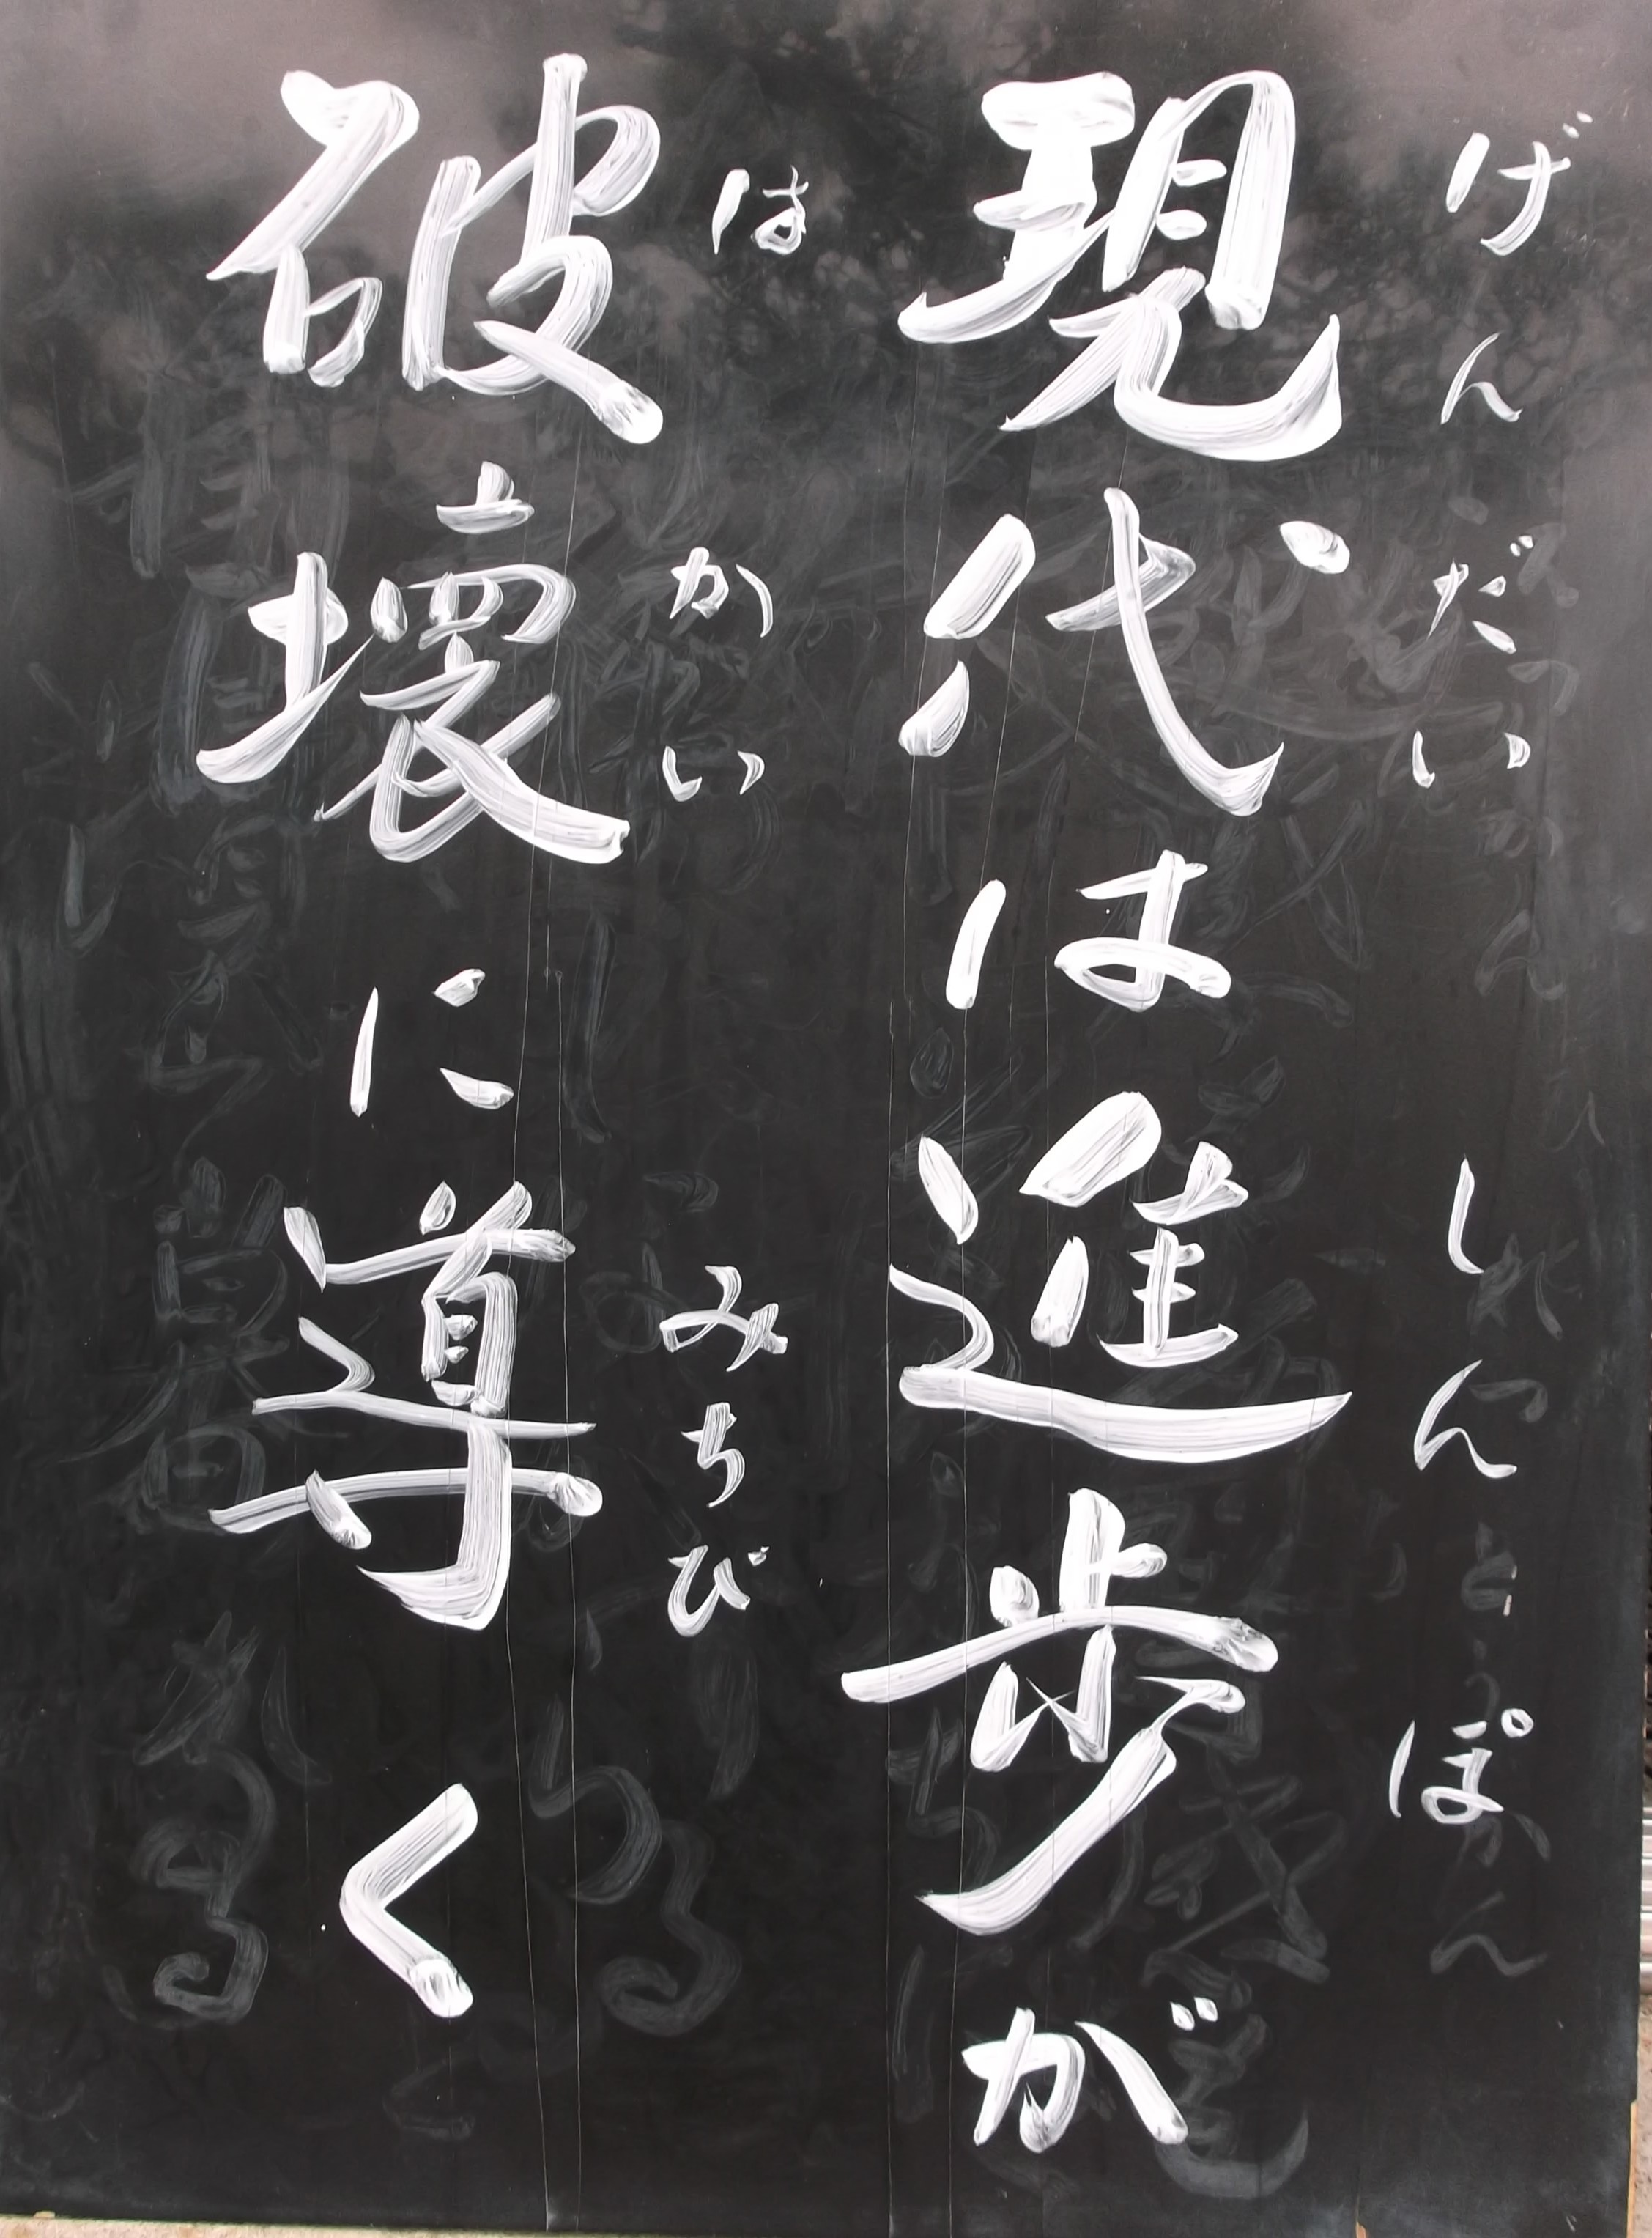 げんだいしんぽ
現代は進歩が
はかいみちび
破壊に導く